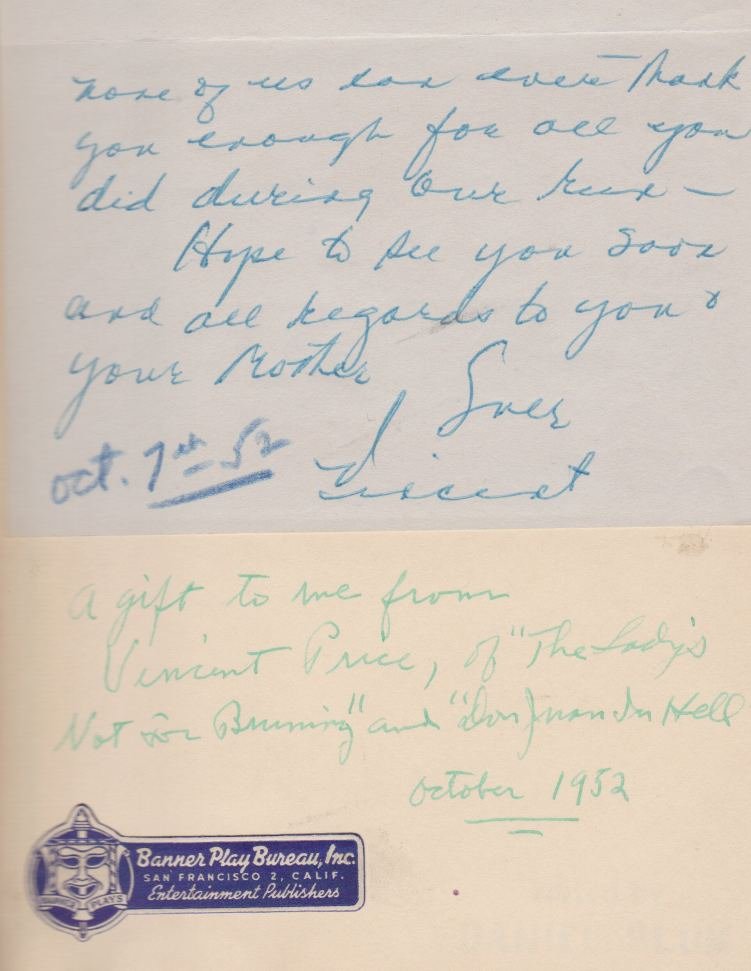 none of us can ever thank
you enough for all you
did during our run —
Hope to see you soon
and all regards to you &
your Mother
Ever
Vincent
oct. 7th 52
A gift to me from
Vincent Price, of "The Lady's
Not For Burning" and "Don Juan In Hell
October 1952
Banner Play Bureau, Inc.
SAN FRANCISCO 2, CALIF.
Entertainment Publishers
BANNER PLAYS